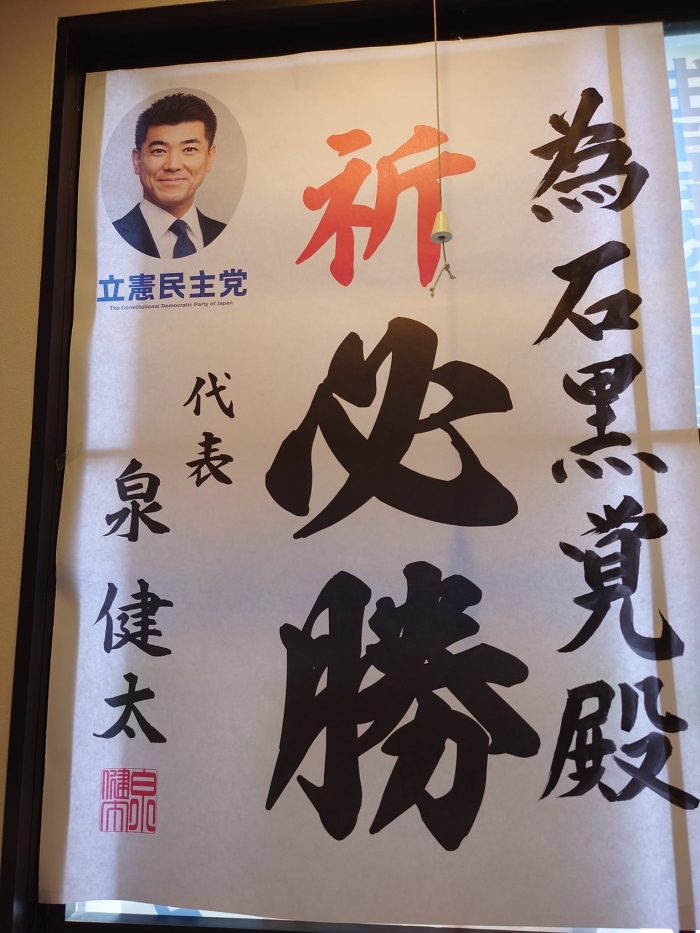 為石黒覚殿
祈必勝
立憲民主党
The Constitutional Democratic Party of Japan
代表
泉健太
泉健太